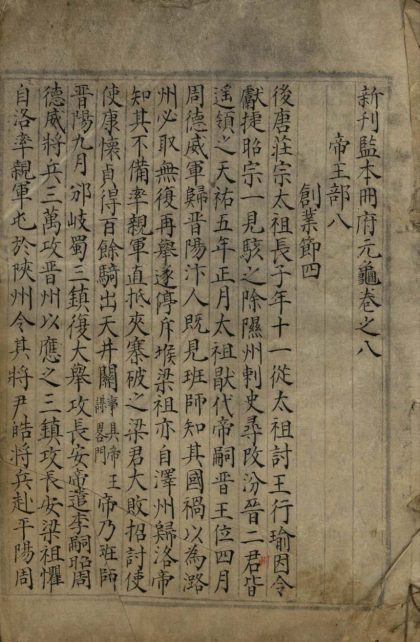 新刊監本冊府元龜卷之八
帝王部八
創業第四
後唐莊宗太祖長子年十一從太祖討王行瑜因令
獻捷昭宗一見駭之除隰州刺史尋改汾晉二君皆
遥領之天祐五年正月太祖猒代帝嗣晉王位四月
周德威軍歸晉陽汴人既見班師知其國禍以為潞
州必取無復再舉遂停斥堠梁祖亦自澤州歸洛帝
知其不備率親軍直抵夾寨破之梁君大敗招討使
使康懷貞得百餘騎出天井關事具帝王謀畧門帝乃班師
晉陽九月邠岐蜀三鎮復大舉攻長安帝遣李嗣昭周
德威將兵三萬攻晉州以應之三鎮攻長安梁祖懼
自洛率親軍屯於陝州令其將尹皓將兵赴平陽周